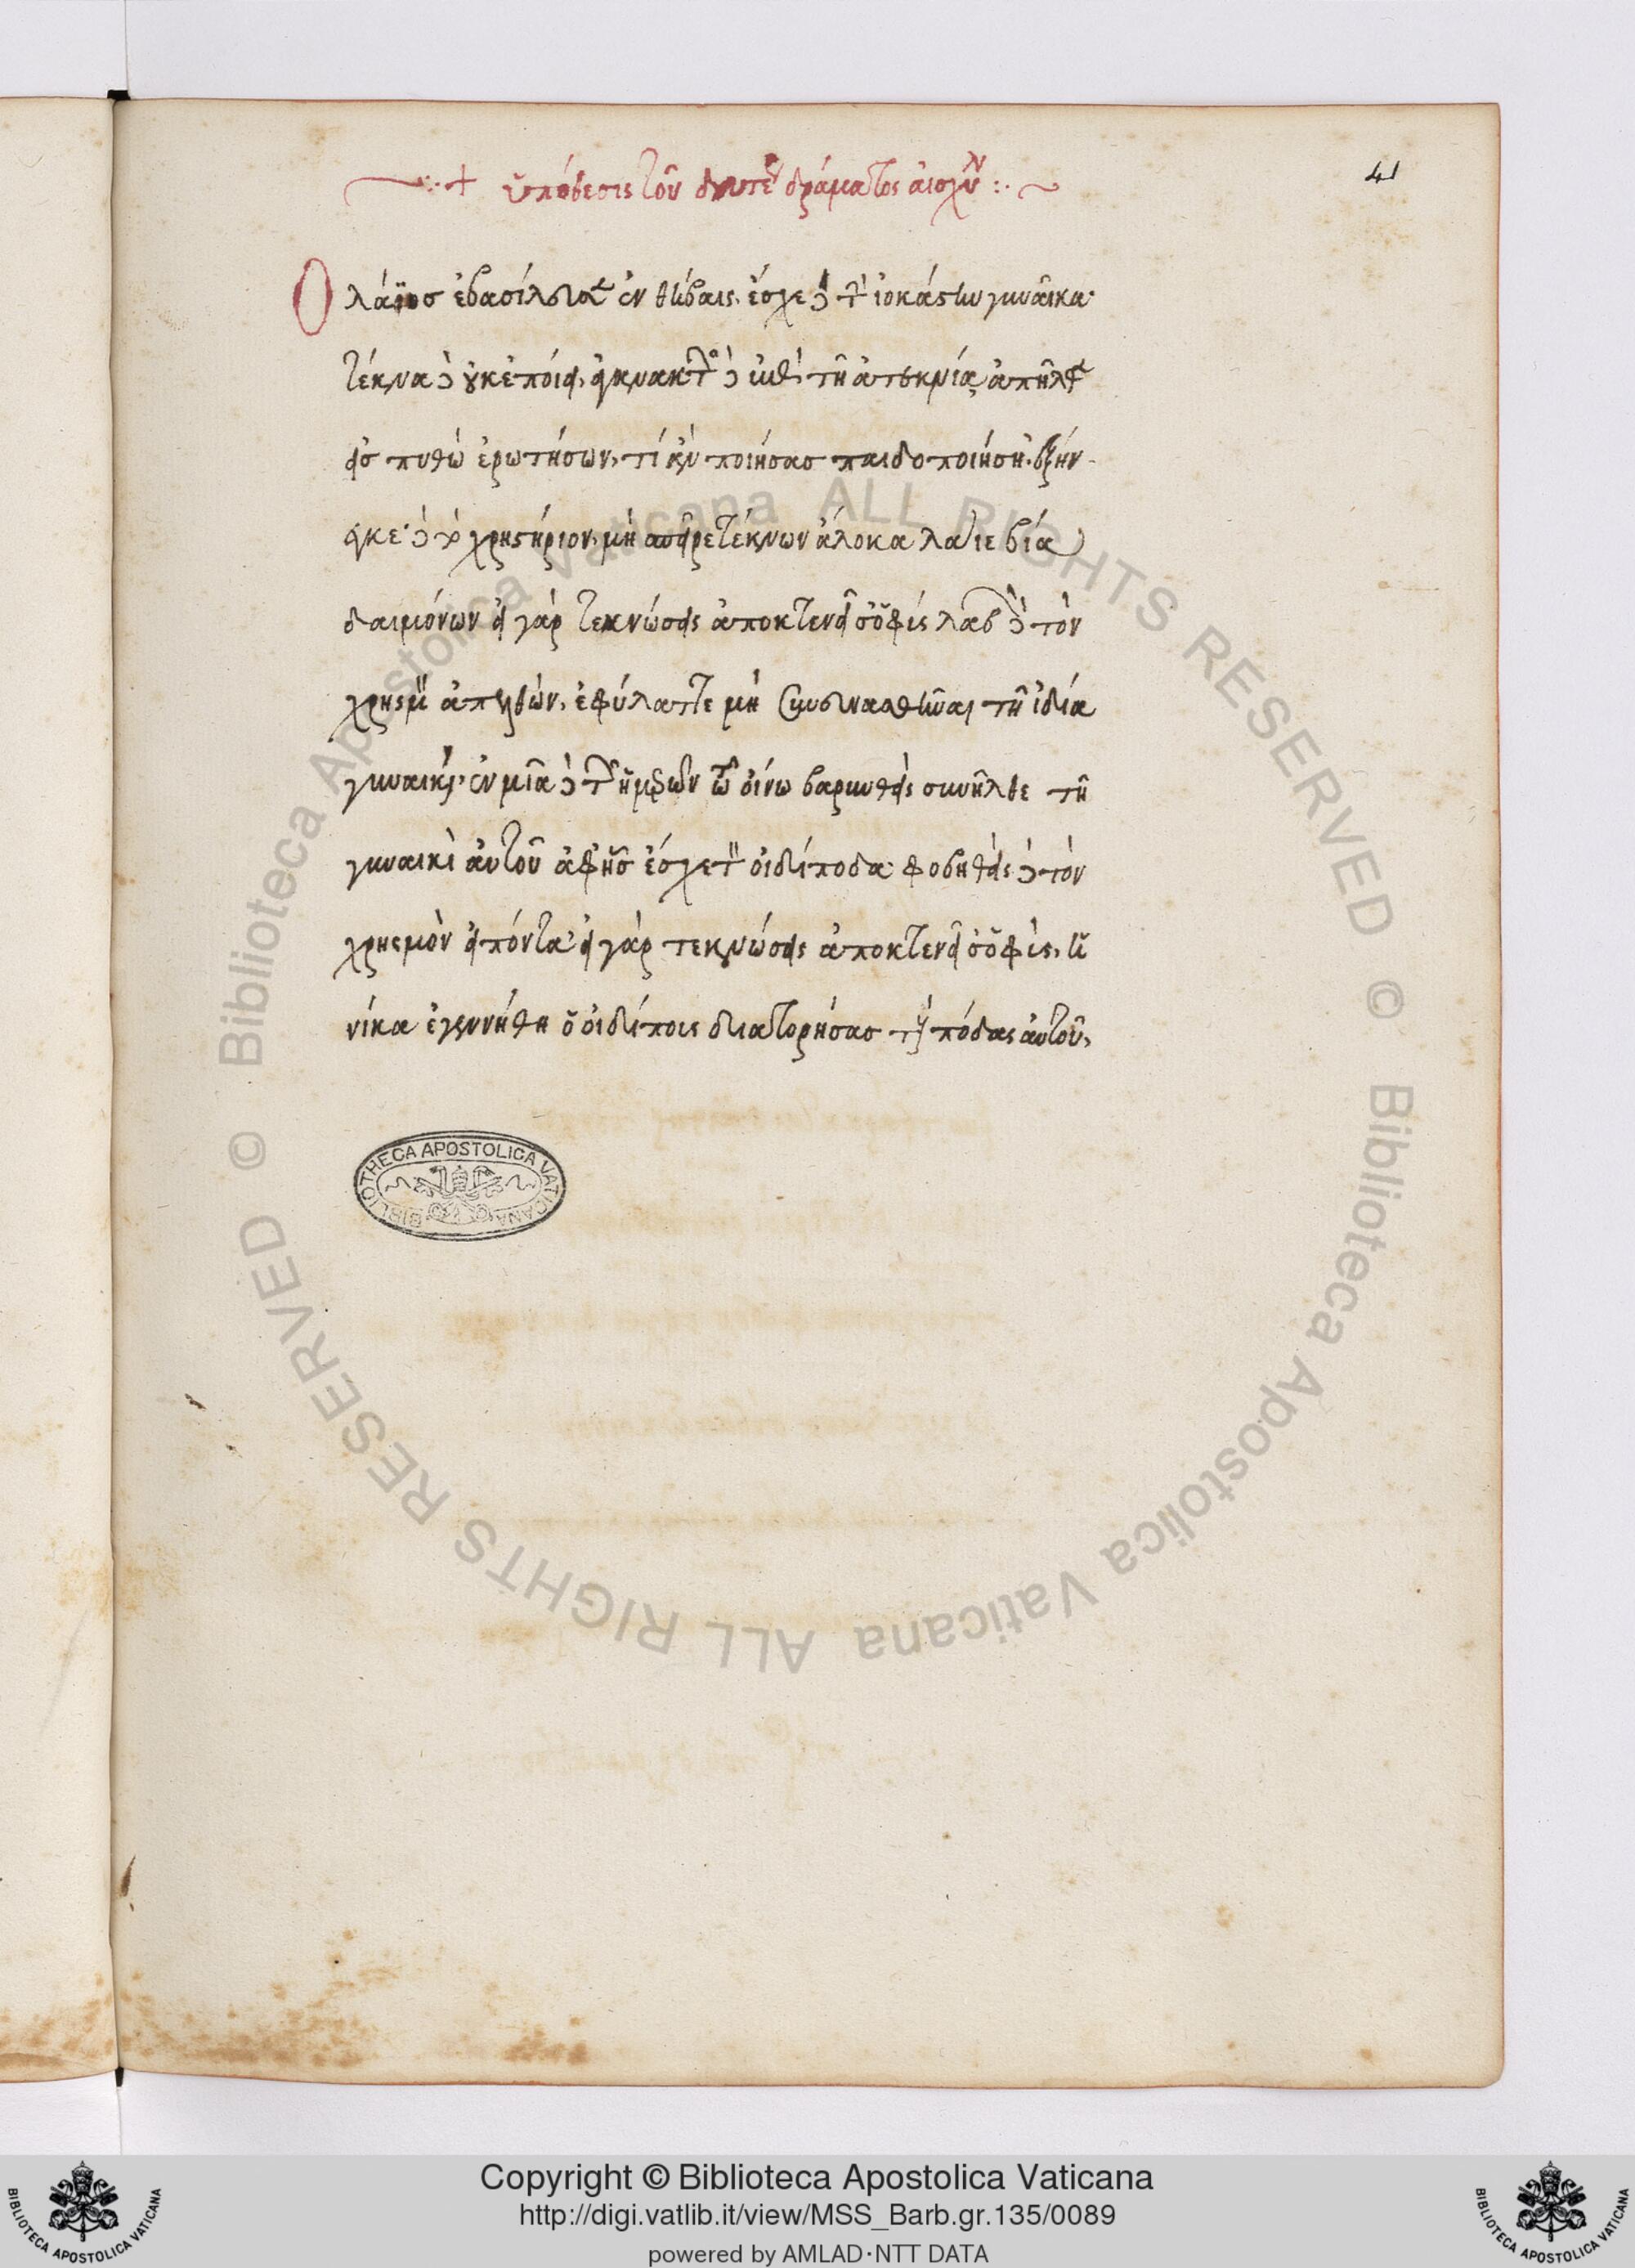 41
ὑπόθεσις τοῦ δευτέρου δράματος αἰσχύλου
Ὁ λάϊος ἐβασίλευσεν ἐν θήβαις. ἔσχε δὲ τὴν ἰοκάστην γυναῖκα·
τέκνα δὲ οὐκ ἐποίει. δὲ ἐπὶ τῇ ἀτεκνία ἀπῆλθεν
εἰς πυθὼ ἐρωτήσων, τί ἂν ποιήσας παιδοποιήση. ἐξήν-
εγκε δὲ τὸ χρηστήριον, μὴ σπεῖρε τέκνων ἄλοκα λάιε βία
δαιμόνων εἰ γὰρ τεκνώσεις ἀποκτενεῖ σ' ὁ φύς λαβὼν δὲ τὸν
χρησμὸν ἀπελθὼν, ἐφύλαττε μὴ συνευνασθῆναι τῆ ἰδία
γυναικί. ἐν μιᾶ δὲ τῶν ἡμερῶν τῶ οἴνω βαρυνθεὶς συνῆλθε τῆ
γυναικὶ αὐτοῦ ἀφ' ἧς ἔσχε τὸν οἰδίποδα· φοβηθεὶς δὲ τὸν
χρησμὸν εἰπόντα· εἰ γὰρ τεκνώσεις ἀποκτενεῖ σ' ὁ φὺς, ἡ
νίκα ἐγεννήθη ὁ οἰδίπους διατορήσας τοὺς πόδας αὐτοῦ,
BIBLIOTHECA APOSTOLICA VATICANA
© Biblioteca Apostolica Vaticana ALL RIGHTS RESERVED
© Biblioteca Apostolica Vaticana ALL RIGHTS RESERVED
Copyright © Biblioteca Apostolica Vaticana
http://digi.vatlib.it/view/MSS_Barb.gr.135/0089
powered by AMLAD·NTT DATA
BIBLIOTECA APOSTOLICA VATICANA
BIBLIOTECA APOSTOLICA VATICANA